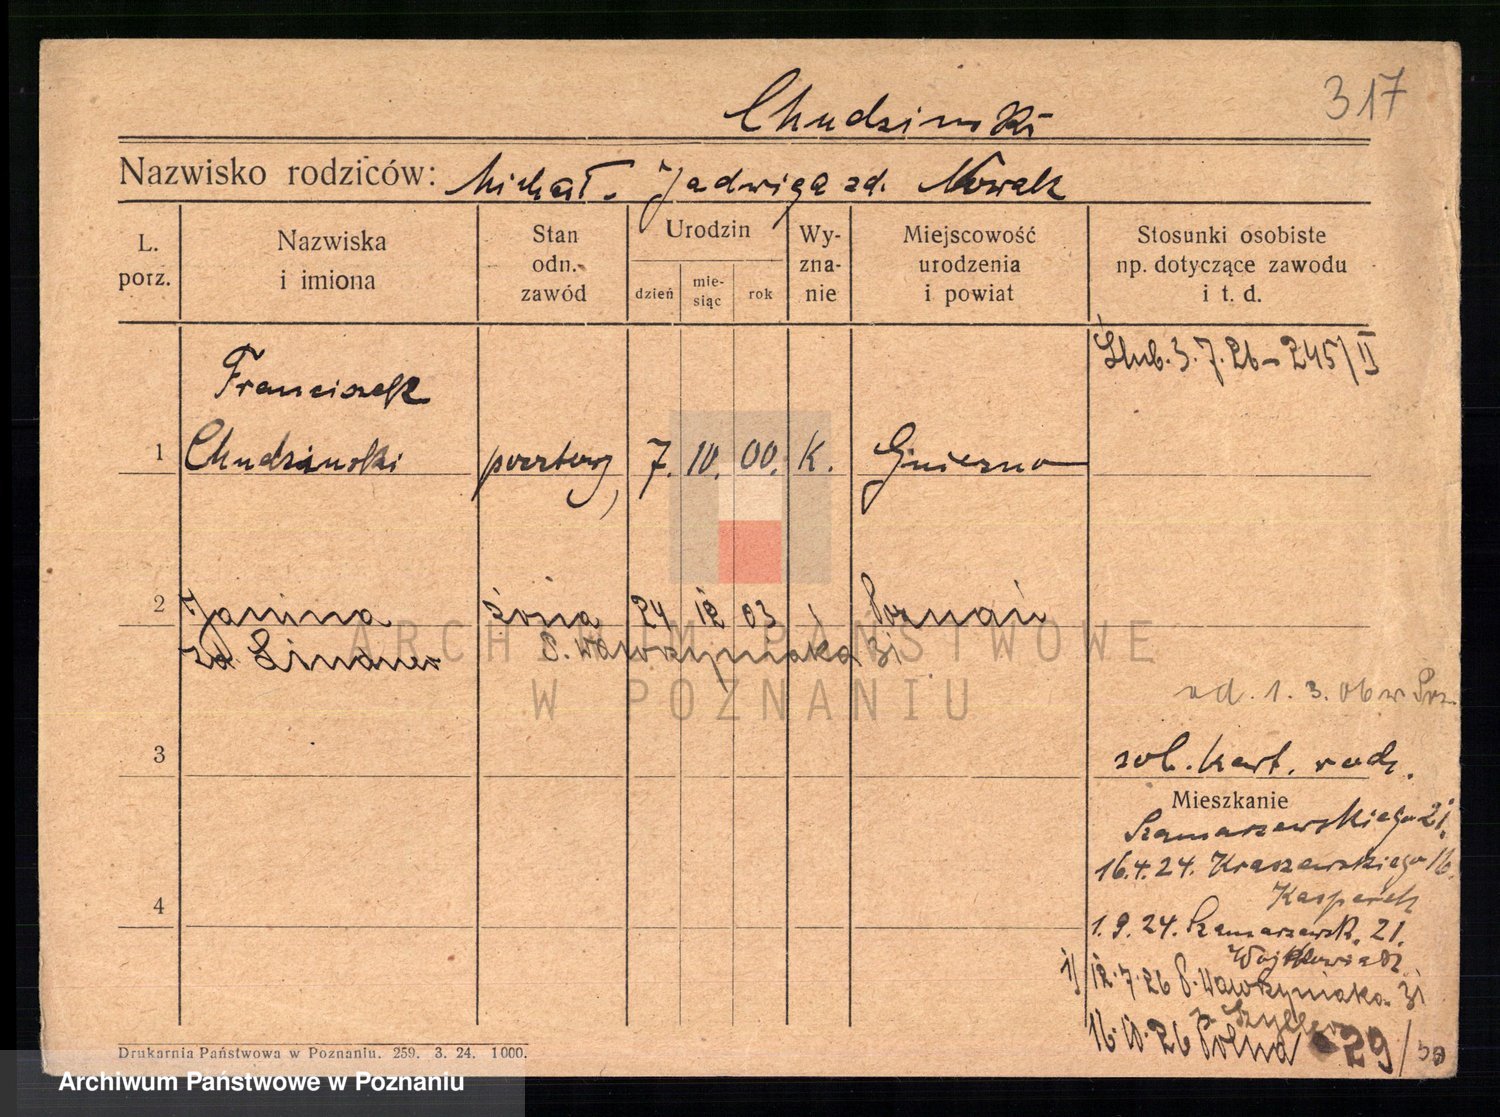 317
Chudzinski
Nazwisko rodziców: Michał. Jadwiga zd. Nowak
L. porz.
Nazwiska i imiona
Stan odn. zawód
Urodzin
dzień
mie-
siąc
rok
Wy-
zna-
nie
Miejscowość urodzenia i powiat
Stosunki osobiste np. dotyczące zawodu i t. d.
Ślub. 3. 7. 26 - 245/II
Franciszek
1 Chudzinski pocztowy 7. 10. 00. K. Gniezno
2 Janina żona 24 12 03 Poznań
zd. Lindner Wawrzyniaka 31
ARCHIWUM PAŃSTWOWE
W POZNANIU
od. 1. 3. 06 w
3 kart. rodz.
Mieszkanie
Szamarzewskiego 21.
16.4.24. Kraszewskiego 16.
4 Kasperek
1.9.24. Szamarzewsk. 21.
1) 12.7.26 Wawrzyniaka 31
16.10.26 Polna 29/
Drukarnia Państwowa w Poznaniu. 259. 3. 24. 1000.
Archiwum Państwowe w Poznaniu